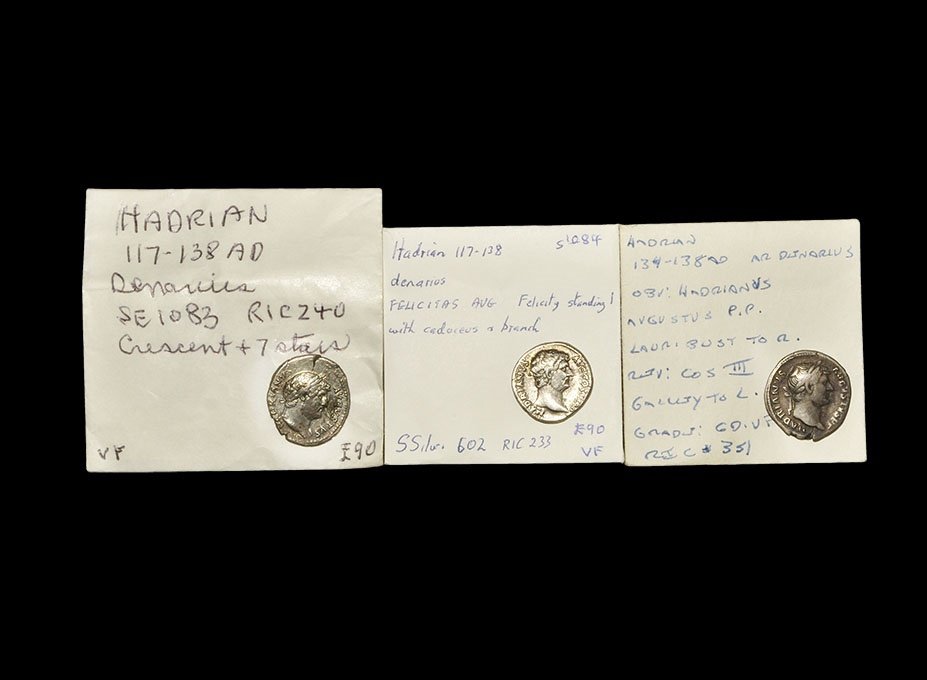 HADRIAN
117-138 AD
Denarius
SE1083 RIC240
Crescent + 7 stars
VF £90
Hadrian 117-138 S1084
denarios
FELICITAS AUG Felicity standing l
with caduceus & branch
£90
SSilv. 602 RIC 233 VF
HADRIAN
134-138 AD AR DENARIUS
OBV: HADRIANUS
AUGUSTUS P.P.
LAUR: BUST TO R.
REV: COS III
GALLEY TO L.
GRADE: GD. VF
RIC # 351